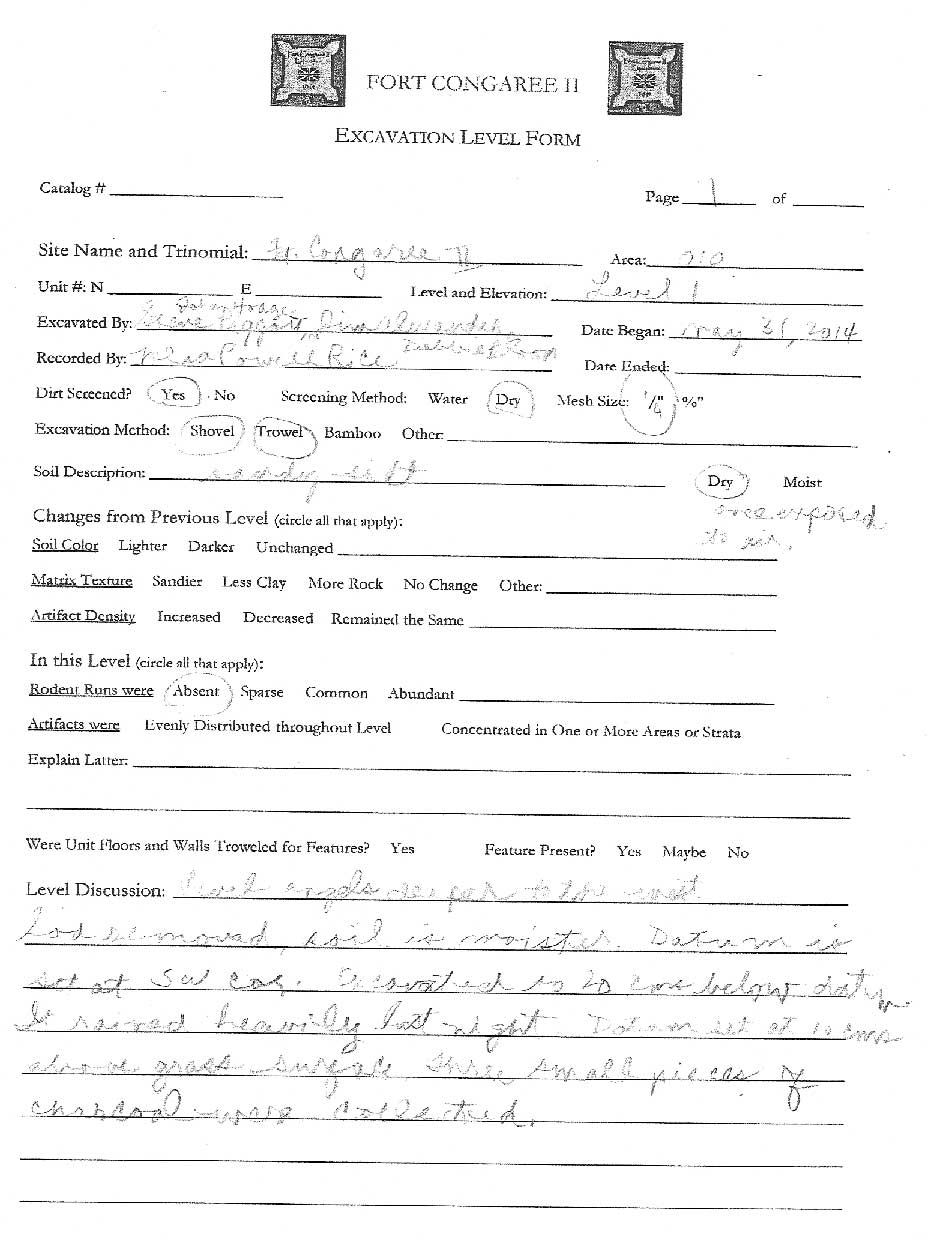 FORT CONGAREE II
EXCAVATION LEVEL FORM
Catalog #
Page 1 of
Site Name and Trinomial: Ft. Congaree II Area:
Unit #: N E Level and Elevation: Level 1
Excavated By: Steve Date Began: May 31, 2014
Recorded By: Powell Rice Date Ended:
Dirt Screened? Yes No Screening Method: Water Dry Mesh Size: 1/4" %"
Excavation Method: Shovel Trowel Bamboo Other:
Soil Description: sandy silt Dry Moist
once exposed
to air.
Changes from Previous Level (circle all that apply):
Soil Color Lighter Darker Unchanged
Matrix Texture Sandier Less Clay More Rock No Change Other:
Artifact Density Increased Decreased Remained the Same
In this Level (circle all that apply):
Rodent Runs were Absent Sparse Common Abundant
Artifacts were Evenly Distributed throughout Level Concentrated in One or More Areas or Strata
Explain Latter:
Were Unit Floors and Walls Troweled for Features? Yes Feature Present? Yes Maybe No
Level Discussion: Level angels deeper to the west
Sod removed, soil is moister. Datum is
set at SW Cor. Excavated to 20 cms below datum
It rained heavily last night Datum set at 10 cms
above grass surface three small pieces of
charcoal were collected.